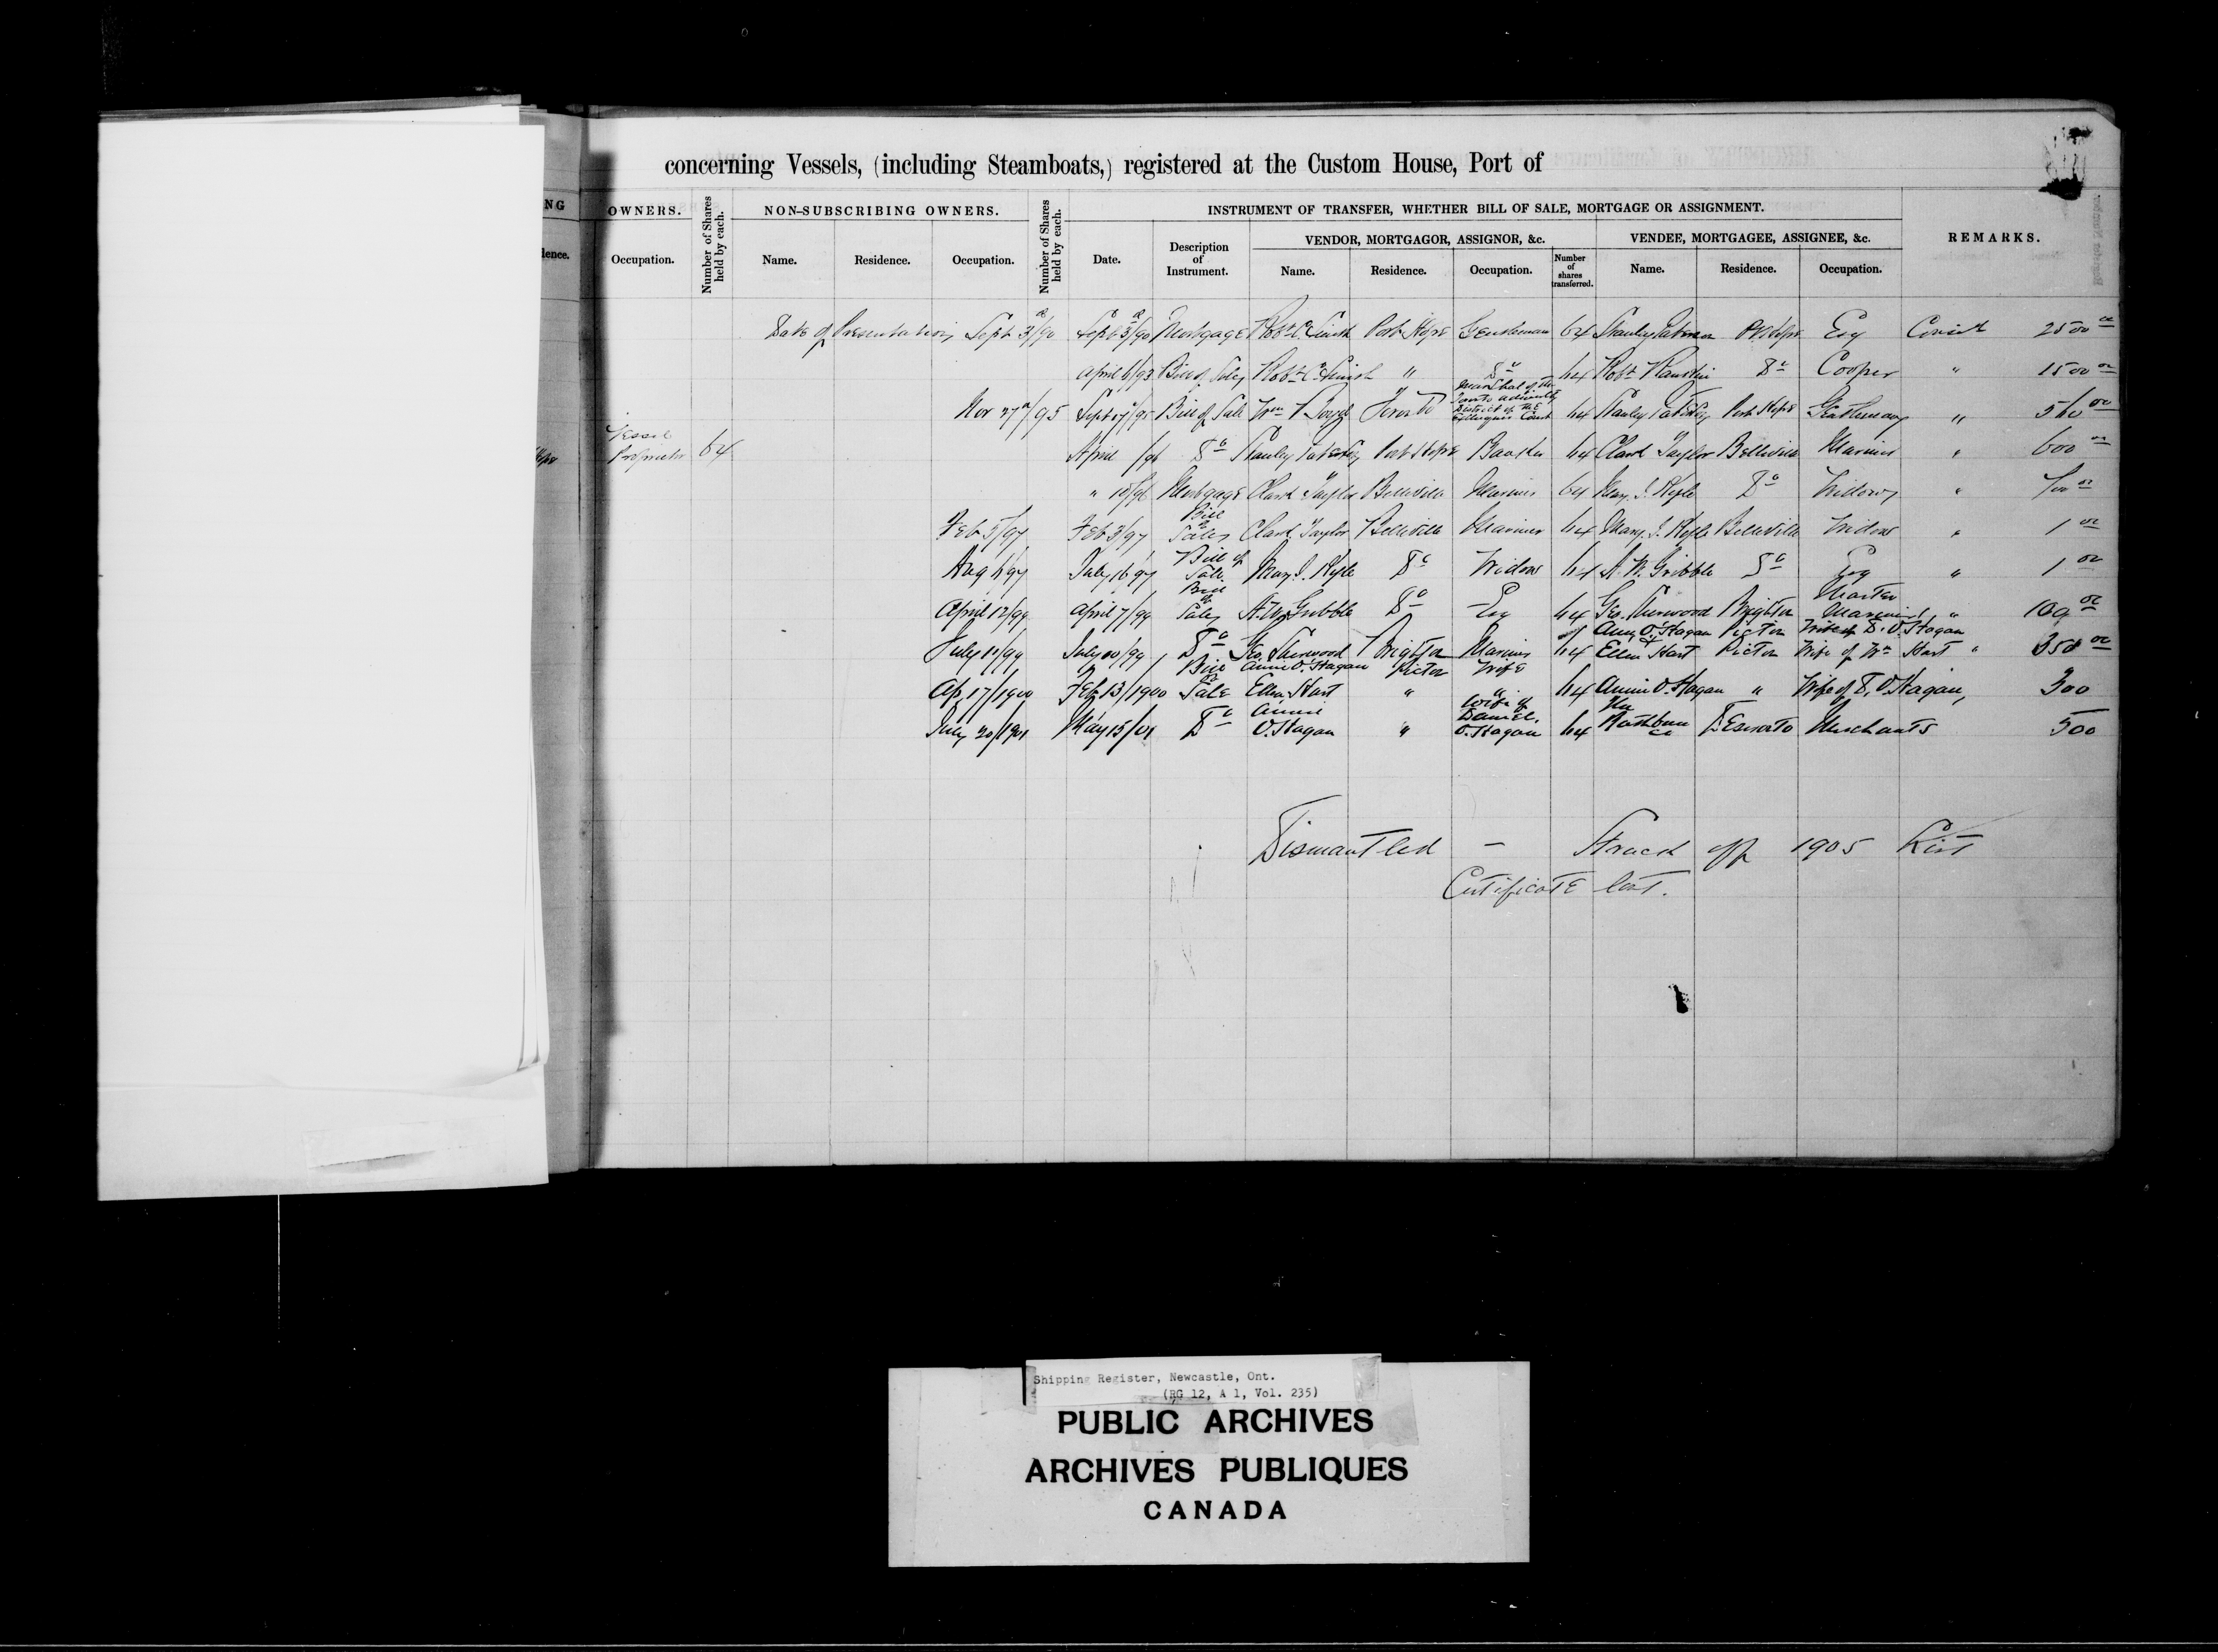 concerning Vessels, (including Steamboats,) registered at the Custom House, Port of
NG OWNERS. Number of Shares held by each. NON-SUBSCRIBING OWNERS. Number of Shares held by each. INSTRUMENT OF TRANSFER, WHETHER BILL OF SALE, MORTGAGE OR ASSIGNMENT. REMARKS.
VENDOR, MORTGAGOR, ASSIGNOR, &c. VENDEE, MORTGAGEE, ASSIGNEE, &c.
dence. Occupation. Name. Residence. Occupation. Date. Description of Instrument. Name. Residence. Occupation. Number of shares transferred. Name. Residence. Occupation.
Date of Presentation Sept 3/90 Sept 3/90 Mortgage Robt C Smith Port Hope Gentleman 64 Stanley Paterson Pt Hope Esq Consid 2500 00
April 6/93 Bill of Sale Robt C Smith " Do 64 Robt Do Cooper " 1500 00
Nov 27/95 Bill of Sale Wm Boyd Toronto Marshal of the Toronto Admiralty District of the Exchequer Court 64 Stanley Port Hope Gentleman " 560 00
Vessel Proprietor 64 April /96 Do Stanley Port Hope Banker 64 Clark Taylor Belleville Mariner " 600 00
" 10/96 Mortgage Clark Taylor Belleville Mariner 64 Mary J. Do Widow " 700 00
Feb 5/97 Feb 3/97 Bill of Sale Clark Taylor Belleville Mariner 64 Mary J. Belleville Widow " 1 00
Aug 6/97 July 16/97 Bill of Sale Mary J. Do Widow 64 A. W. Gribble Do Esq " 1 00
April 12/99 April 7/99 Bill of Sale A. W. Gribble Do Esq 64 Geo. Brighton Master Mariner " 100 00
July 11/99 July 10/99 Do Geo. Brighton Mariner 64 Annie O'Hagan Picton Wife of D. O'Hagan & Ellen Hart Picton Wife of Wm Hart " 350 00
Ap. 17/1900 Feb 13/1900 Bill of Sale Annie O'Hagan Ellen Hart Picton " Wife " 64 Annie O'Hagan " Wife of D. O'Hagan, 300
July 20/1901 May 15/01 Do Annie O'Hagan " Wife of Daniel O'Hagan 64 The Rathbun Co Deseronto Merchants 500
Dismantled — Struck off 1905 List
Certificate lost.
Shipping Register, Newcastle, Ont.
(RG 12, A 1, Vol. 235)
PUBLIC ARCHIVES
ARCHIVES PUBLIQUES
CANADA